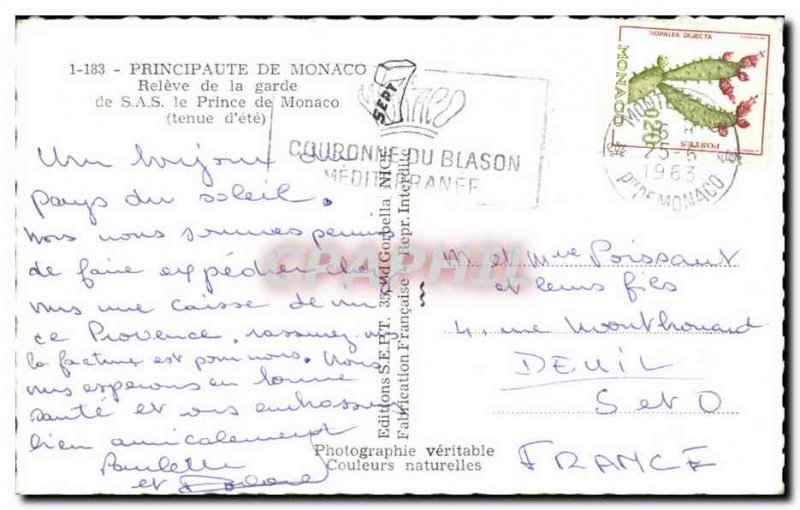 1-183 - PRINCIPAUTE DE MONACO
Relève de la garde
de S.A.S. le Prince de Monaco
(tenue d'été)
SEPT
MONACO
COURONNE DU BLASON
MÉDITERRANÉE
NOPALEA DEJECTA
MONACO
0,20
POSTES
MONTE
25-5
1963
Pté DE MONACO
Un bonjour du
pays du soleil.
Nous nous sommes permis
de faire expédier chez
vous une caisse de vin
de Provence, rassurez-vous
la facture est pour nous. Nous
vous espérons en bonne
santé et vous embrassons
bien amicalement
Paulette
et
Editions S.E.P.T. 35, Bd Gorbella NICE
Fabrication Française - Repr. Interdite
CPAPHIL
M et Mme Poissant
et leurs fils
4, rue Monthouard
DEUIL
S et O
FRANCE
Photographie véritable
Couleurs naturelles